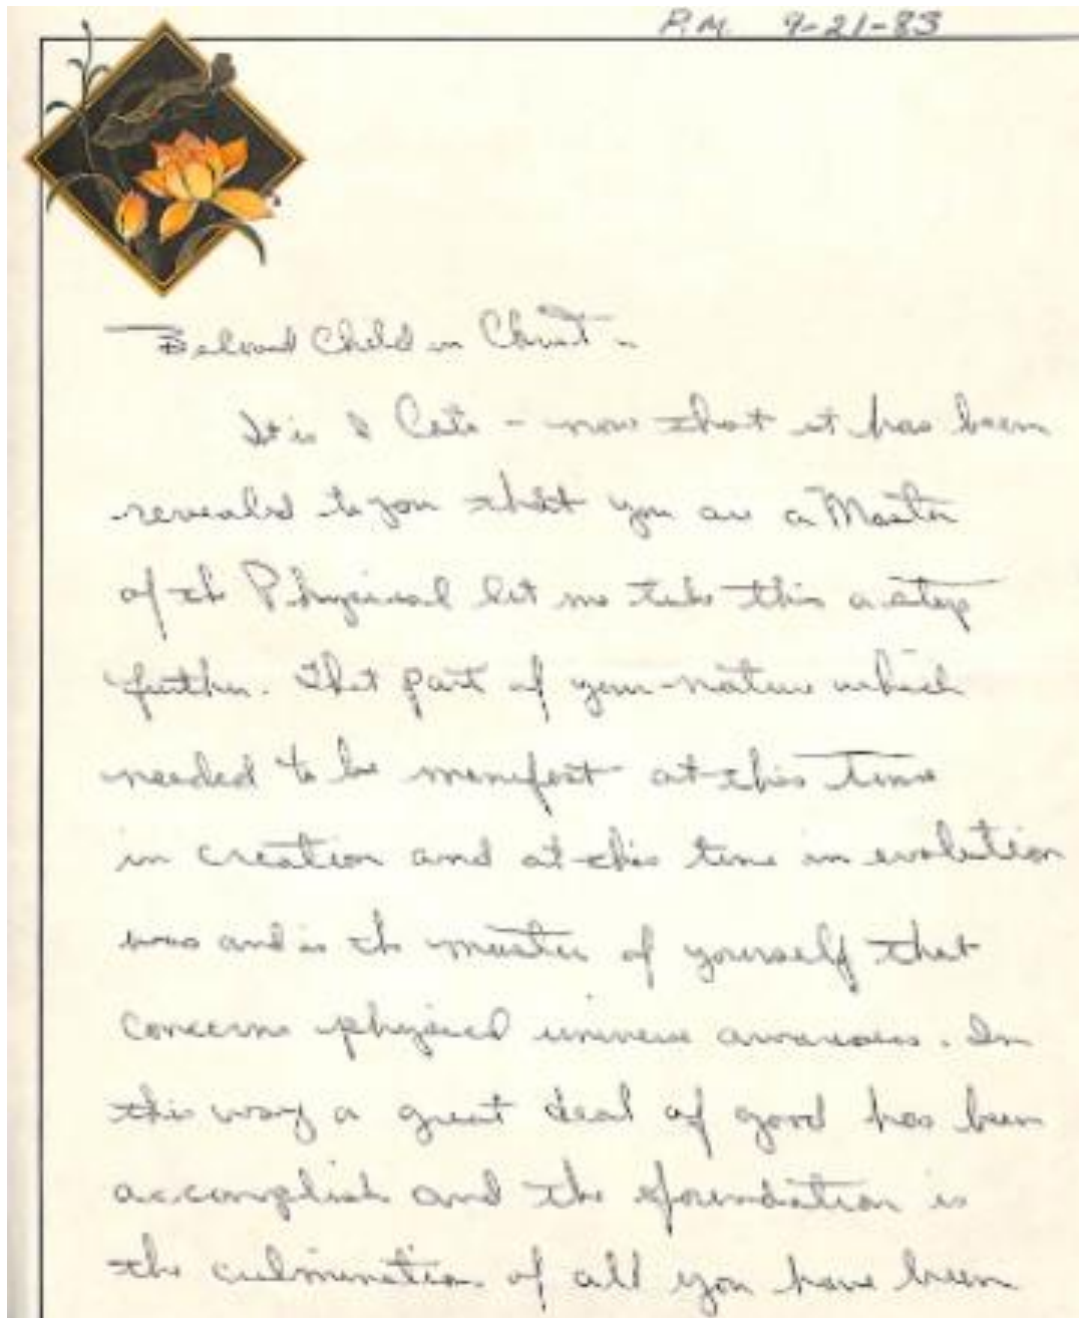 P.M. 9-21-83
Beloved Child in Christ -
It is I Cato - now that it has been
revealed to you that you are a Master
of the Physical let me take this a step
further. That part of your nature which
needed to be manifest at this time
in creation and at this time in evolution
was and is the master of yourself that
concerns physical universe awareness. In
this way a great deal of good has been
accomplish and the foundation is
the culmination of all you have been